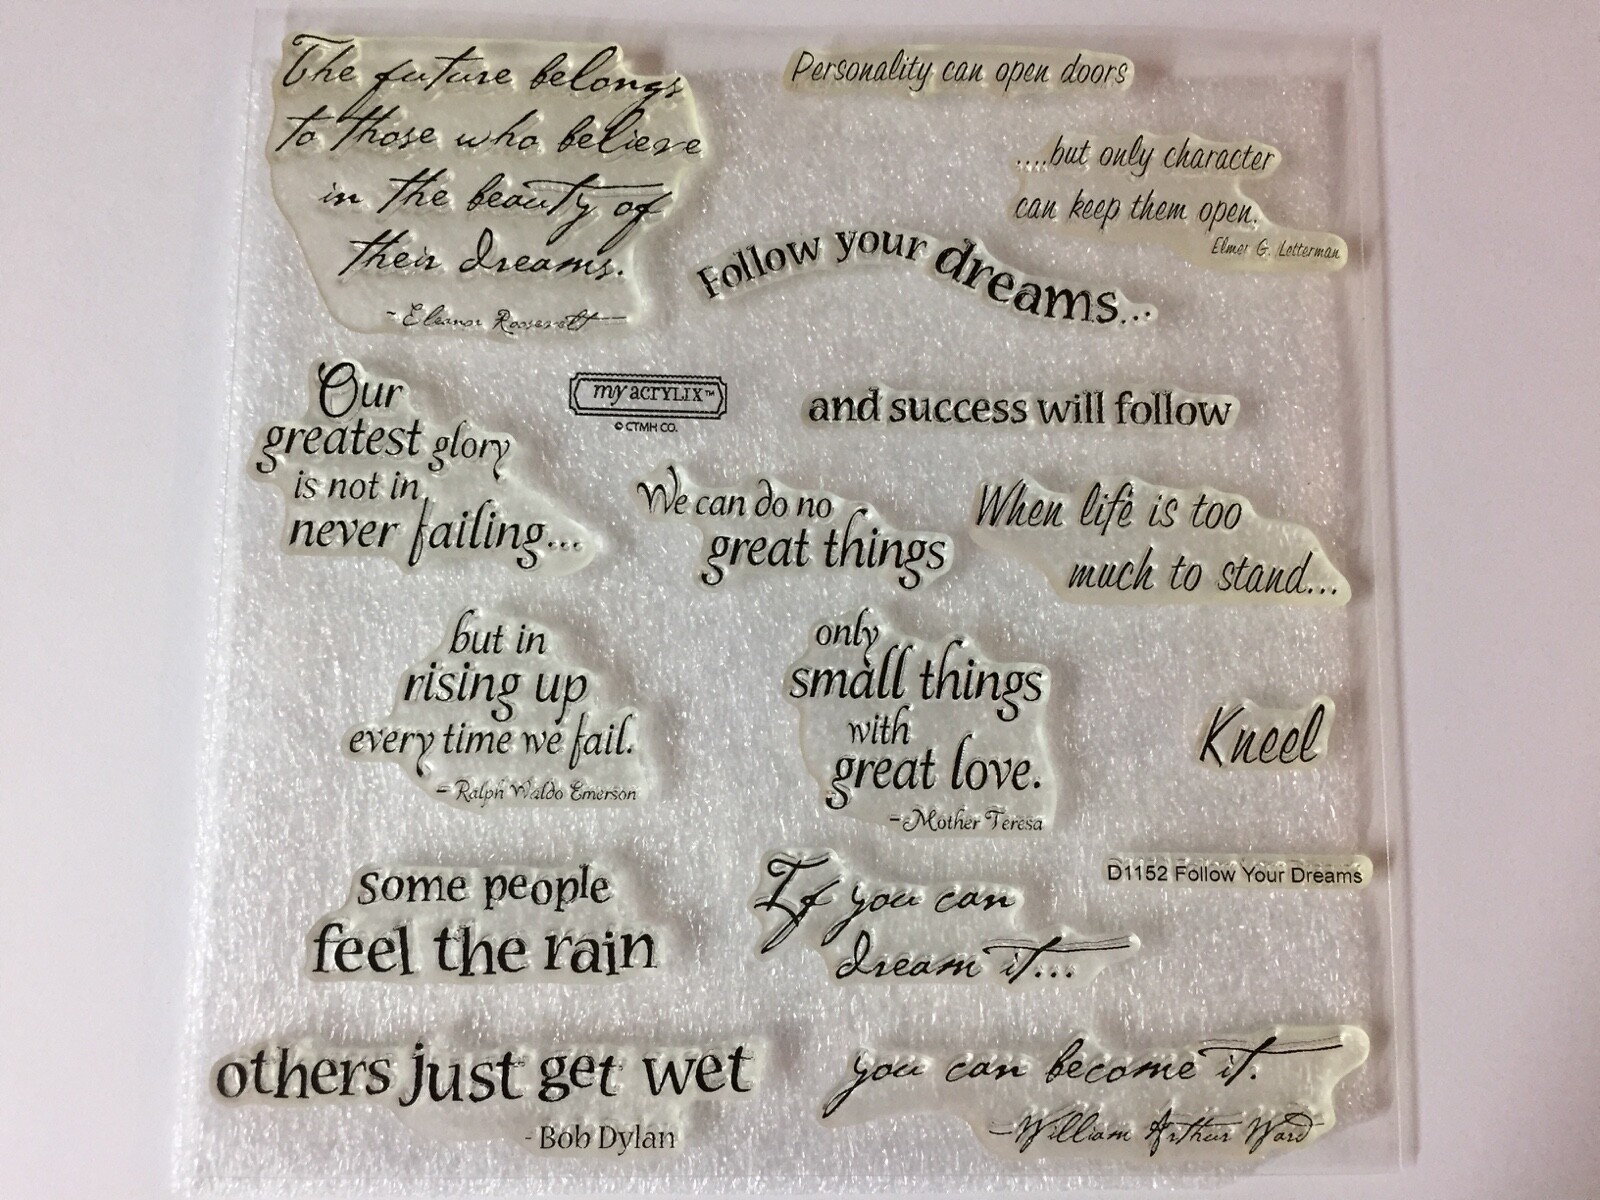 The future belongs
to those who believe
in the beauty of
their dreams.
- Eleanor Roosevelt
Personality can open doors
....but only character
can keep them open.
Elmer G. Letterman
Follow your dreams...
Our
greatest glory
is not in
never failing...
my acrylix™
© CTMH CO.
and success will follow
We can do no
great things
When life is too
much to stand...
but in
rising up
every time we fail.
- Ralph Waldo Emerson
only
small things
with
great love.
-Mother Teresa
Kneel
some people
feel the rain
If you can
dream it...
D1152 Follow Your Dreams
others just get wet
- Bob Dylan
you can become it.
-William Arthur Ward